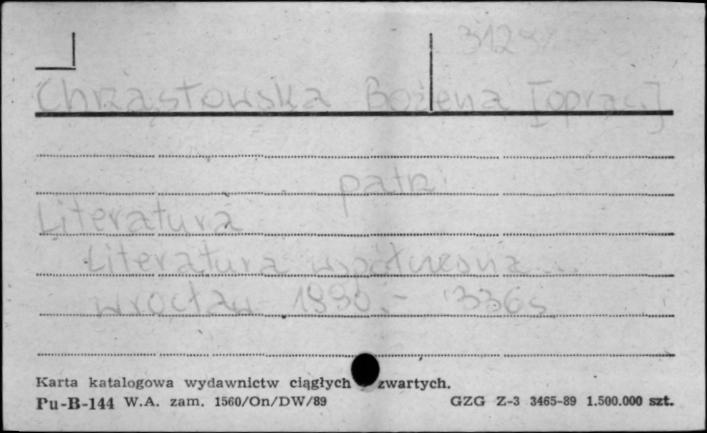 3128
Chrząstowska Bożena [oprac.]
patrz
Literatura
Literatura współczesna...
Wrocław 1990.- 336s
Karta katalogowa wydawnictw ciągłych zwartych.
Pu-B-144 W.A. zam. 1560/On/DW/89 GZG Z-3 3465-89 1.500.000 szt.